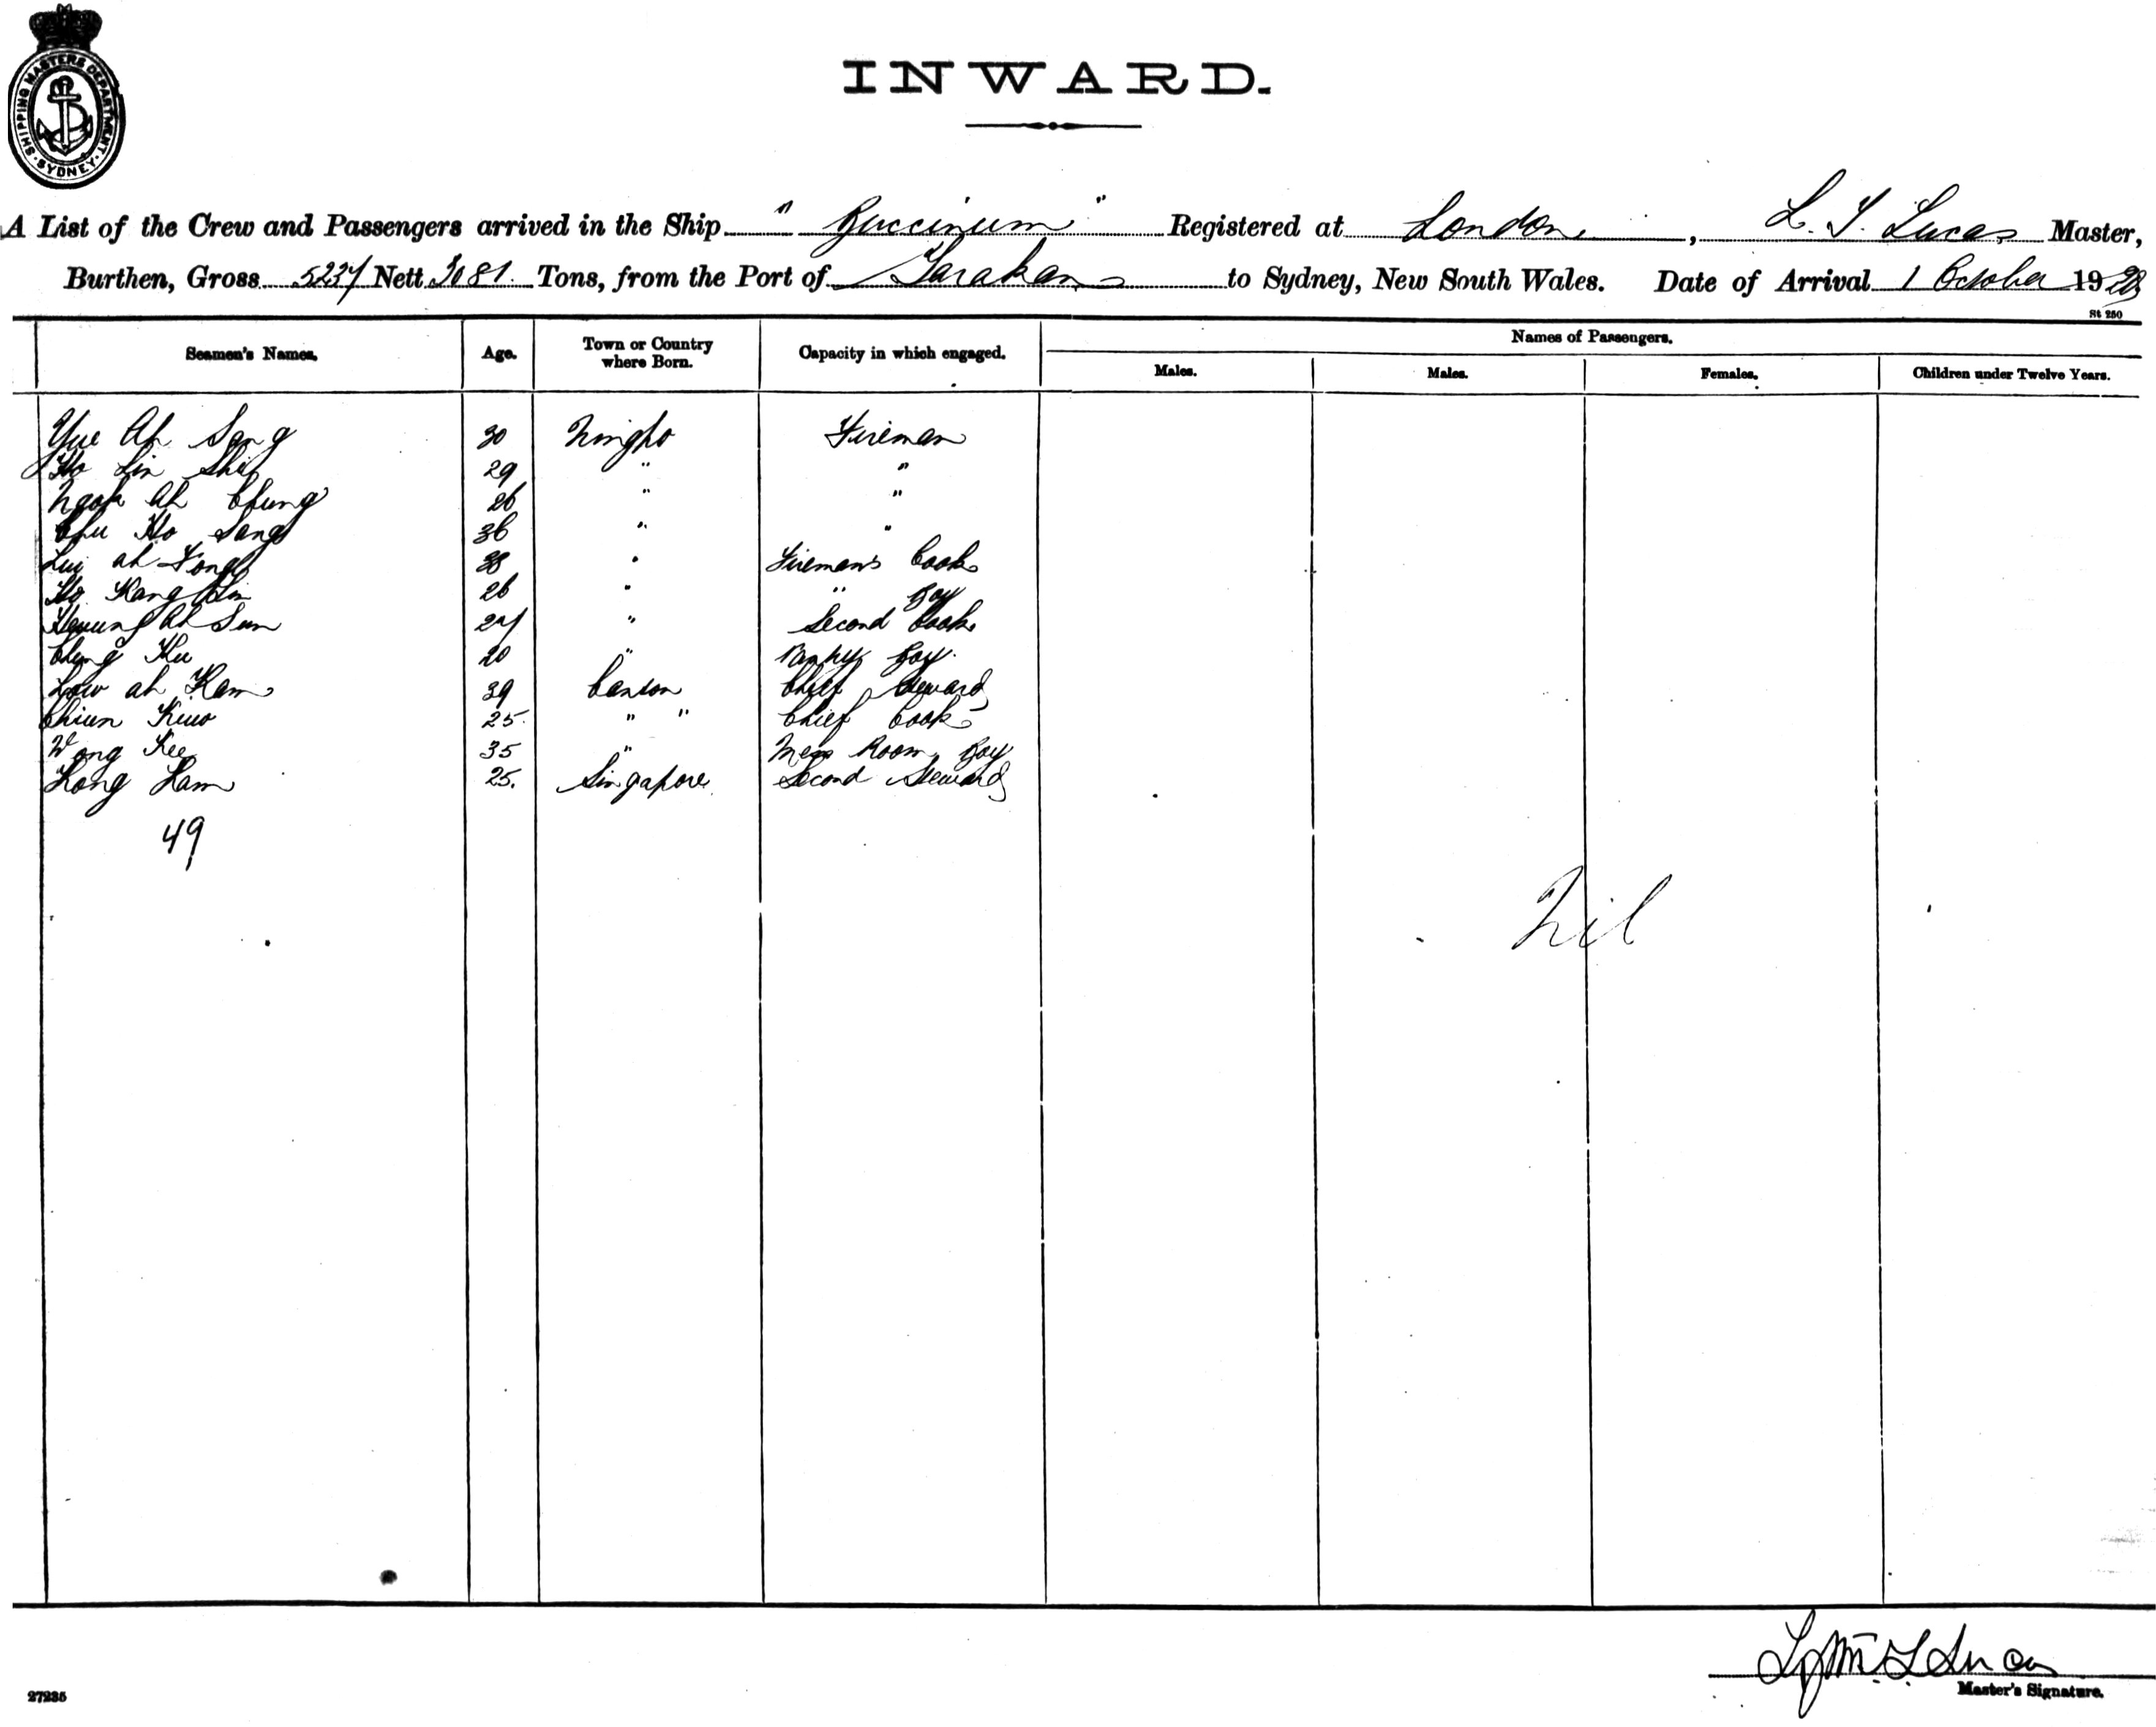 SHIPPING MASTERS DEPARTMENT. SYDNEY.
INWARD.
A List of the Crew and Passengers arrived in the Ship " Buccinum " Registered at London, L. T. Lucas Master,
Burthen, Gross 5237 Nett 3081. Tons, from the Port of Tarakan to Sydney, New South Wales. Date of Arrival 1 October 19
St 250
Seamen's Names. Age. Town or Country where Born. Capacity in which engaged. Names of Passengers.
Males. Males. Females. Children under Twelve Years.
Yue Ah Sang 30 Ningpo Fireman
Ho Lin Shi 29 " "
Ngok Ah Chung 26 " "
Chu Ho Sang 36 " "
Lui ah Fong 38 " Fireman's Cook
Ho Kang Lin 26 " " Boy
Ah Sun 27 " Second Cook
Cheng Ku 20 " Pantry Boy.
Low ah Kam 39 Canton Chief Steward
Chiun Kuo 25. " " Chief Cook
Wong Kee 35 " Mess Room Boy
Hong Ham 25. Singapore Second Steward
49
Nil
Master's Signature.
27235